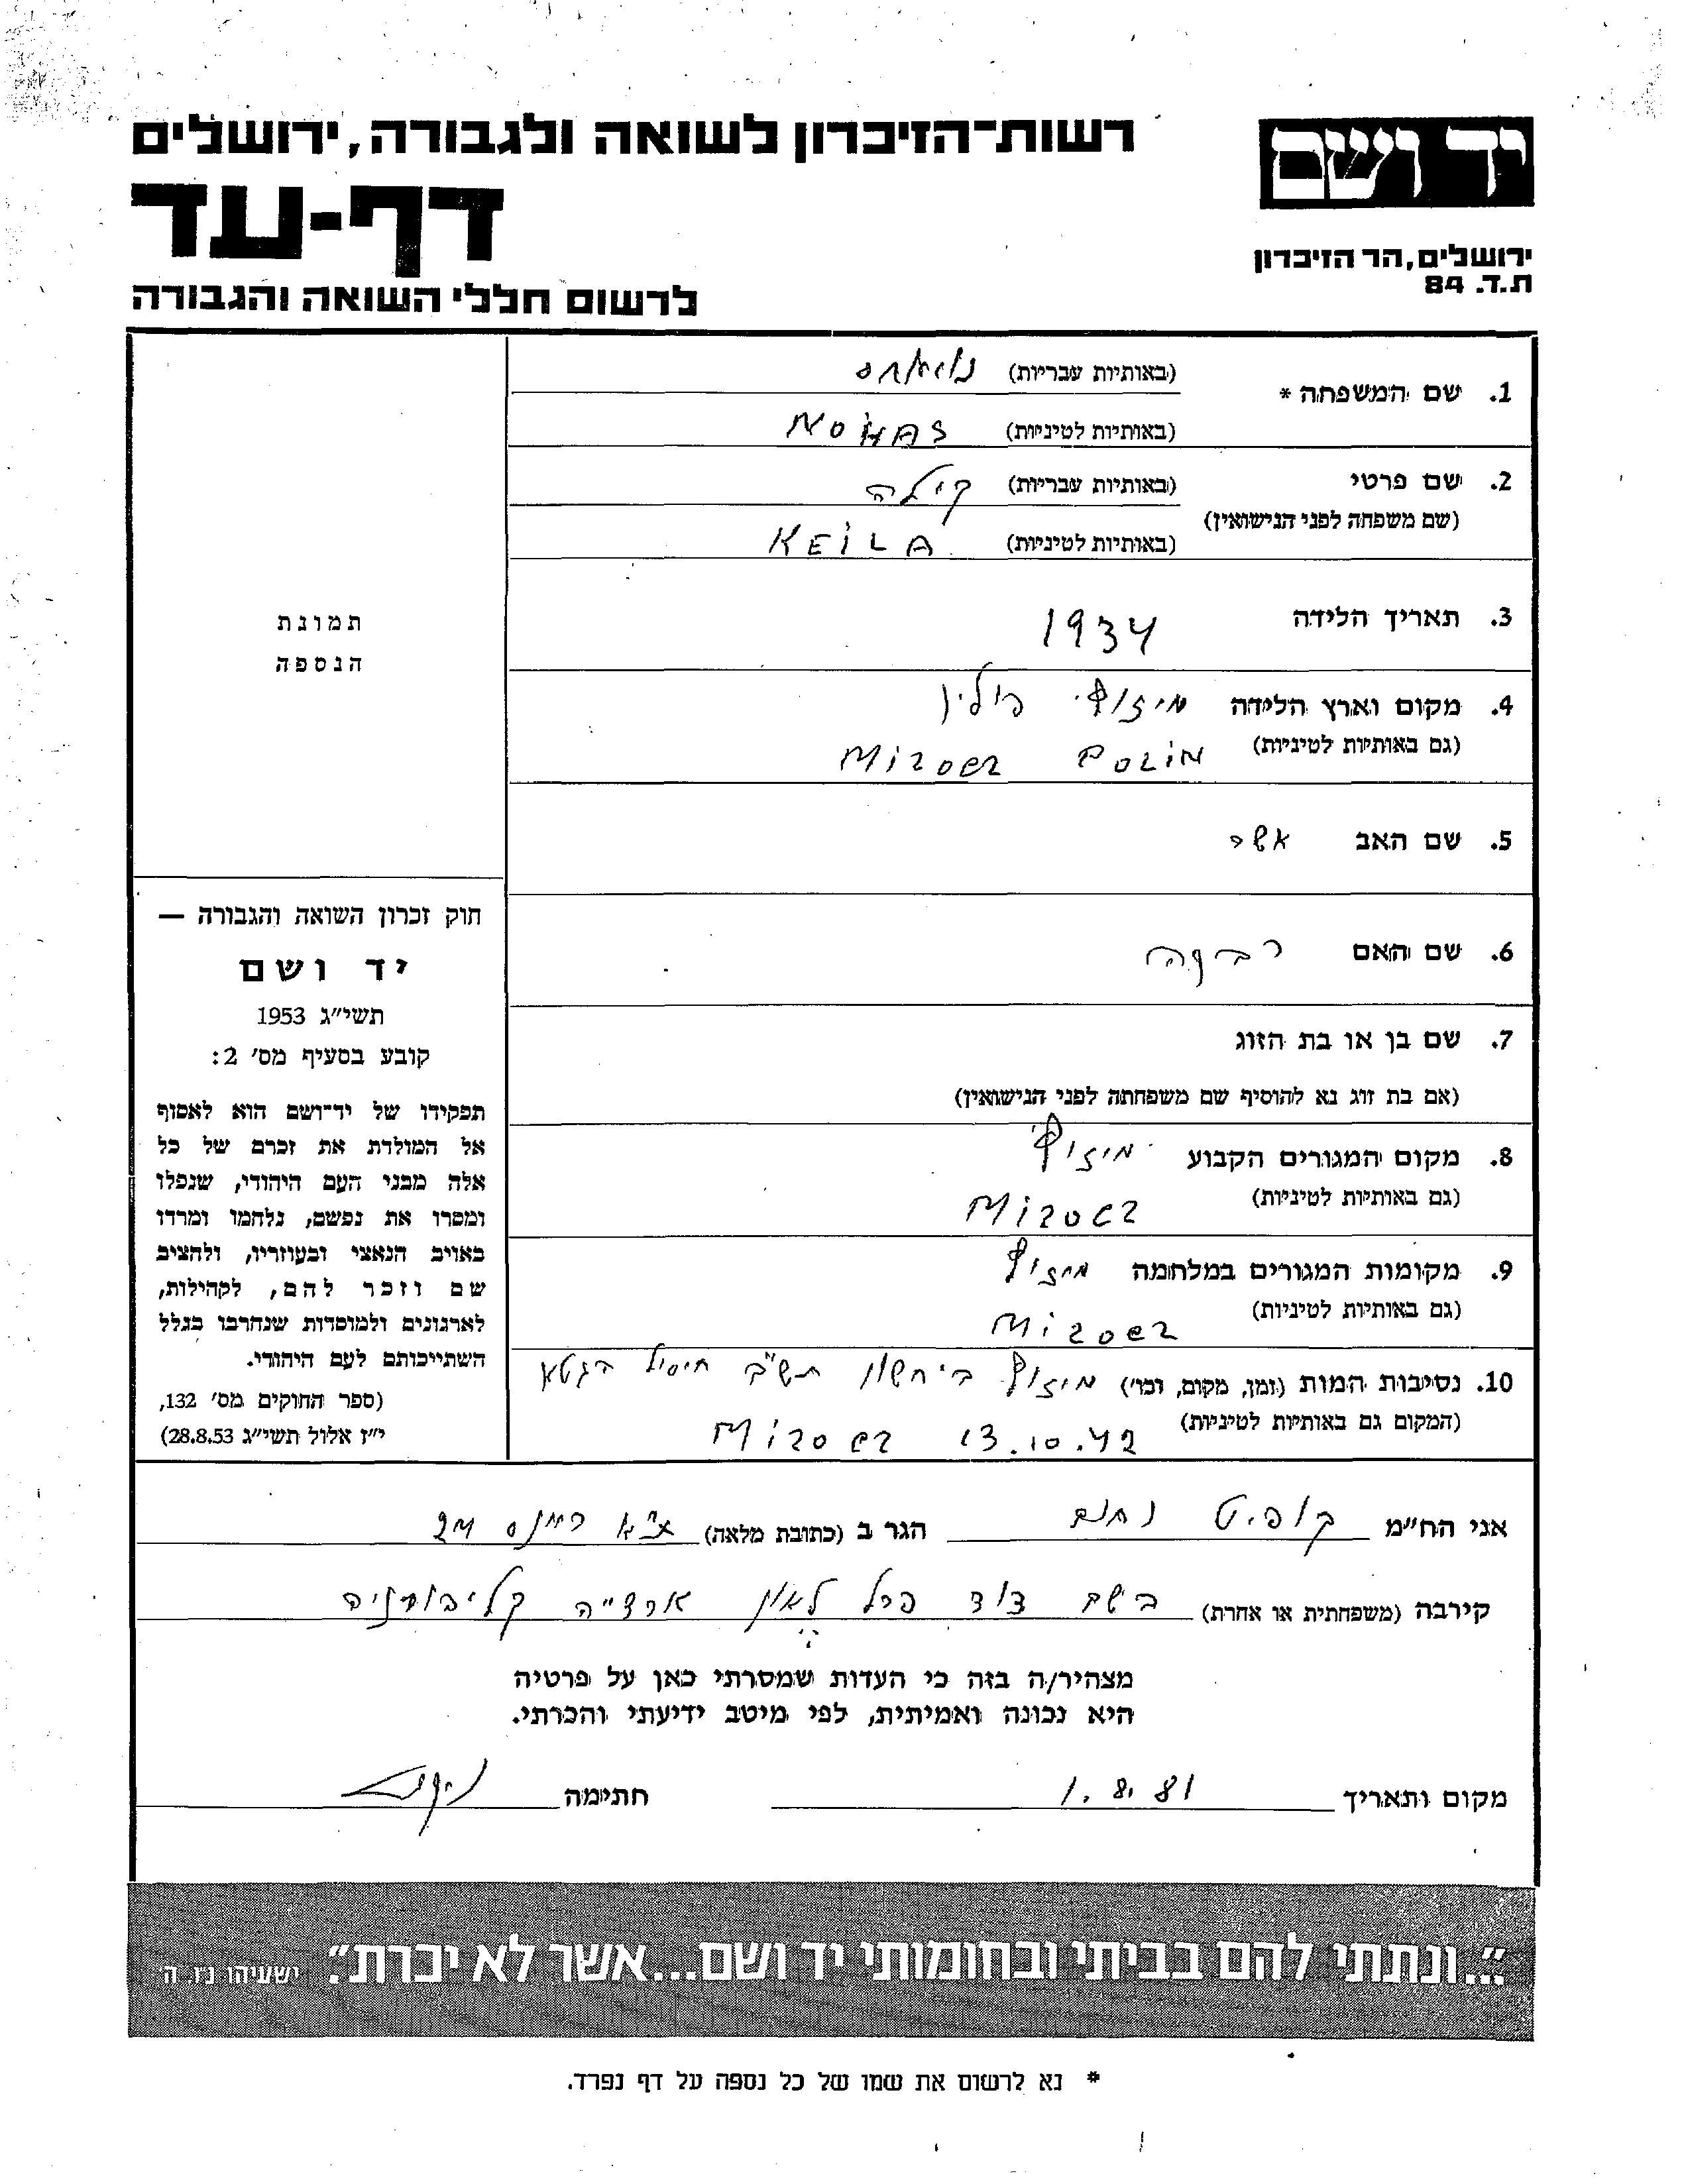 רשות-הזיכרון לשואה ולגבורה, ירושלים
דף-עד
לרשום חללי השואה והגבורה
יד ושם
ירושלים, הר הזיכרון
ת.ד. 84
1. שם המשפחה * (באותיות עבריות)
(באותיות לטיניות) NOHAS
2. שם פרטי (באותיות עבריות) קילה
(שם משפחה לפני הנישואין)
(באותיות לטיניות) KEiLA
3. תאריך הלידה 1934
4. מקום וארץ הלידה מיזוץ' פולין
(גם באותיות לטיניות) Mizoez Polin
5. שם האב אשר
6. שם האם רבקה
7. שם בן או בת הזוג
(אם בת זוג נא להוסיף שם משפחתה לפני הנישואין)
8. מקום המגורים הקבוע מיזוץ'
(גם באותיות לטיניות) Mizocz
9. מקומות המגורים במלחמה מיזוץ
(גם באותיות לטיניות) Mizoez
10. נסיבות המות (זמן, מקום, וכו') מיזוץ ב' חשון תש"ב חיסול הגטא
(המקום גם באותיות לטיניות) 13.10.42 Mizoez
תמונת
הנספה
חוק זכרון השואה והגבורה —
יד ושם
תשי״ג 1953
קובע בסעיף מס׳ 2:
תפקידו של יד־ושם הוא לאסוף
אל המולדת את זכרם של כל
אלה מבני העם היהודי, שנפלו
ומסרו את נפשם, נלחמו ומרדו
באויב הנאצי ובעוזריו, ולהציב
שם וזכר להם, לקהילות,
לארגונים ולמוסדות שנחרבו בגלל
השתייכותם לעם היהודי.
(ספר החוקים מס׳ 132,
י״ז אלול תשי״ג 28.8.53)
אני הח״מ קופיט נחום הגר ב (כתובת מלאה) ת"א
קירבה (משפחתית או אחרת) בשם דוד פרל לאון ארה"ב קליפורניה
מצהיר/ה בזה כי העדות שמסרתי כאן על פרטיה
היא נכונה ואמיתית, לפי מיטב ידיעתי והכרתי.
מקום ותאריך 1.8.81 חתימה
"...ונתתי להם בביתי ובחומותי יד ושם...אשר לא יכרת". ישעיהו נ״ו ה׳
* נא לרשום את שמו של כל נספה על דף נפרד.